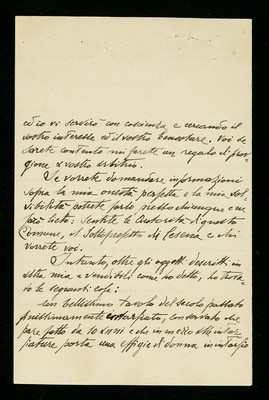 ed io vi servirò con coscienza e cercando il
vostro interesse ed il vostro benessere. Voi se
sarete contento mi farete un regalo di provi
gione a vostro arbitrio.
Se vorrete domandare informazioni
sopra la mia onestà perfetta e la mia sol
vibilità potrete farlo presso chiunque e ne
sarò lieto: Sentite le Autorità di questo
Comune, il Sottoprefetto di Cesena e chi
vorrete voi.
Intanto, oltre gli oggetti descritti in
altra mia e vendibili come ho detto, ho trova
to le seguenti cose:
Un bellissimo tavolo del secolo passato
finissimamente intarsiato, conservato che
pare fatto da 10 anni e che in mezzo all'intar
siature porta una effigie di donna in intarsio